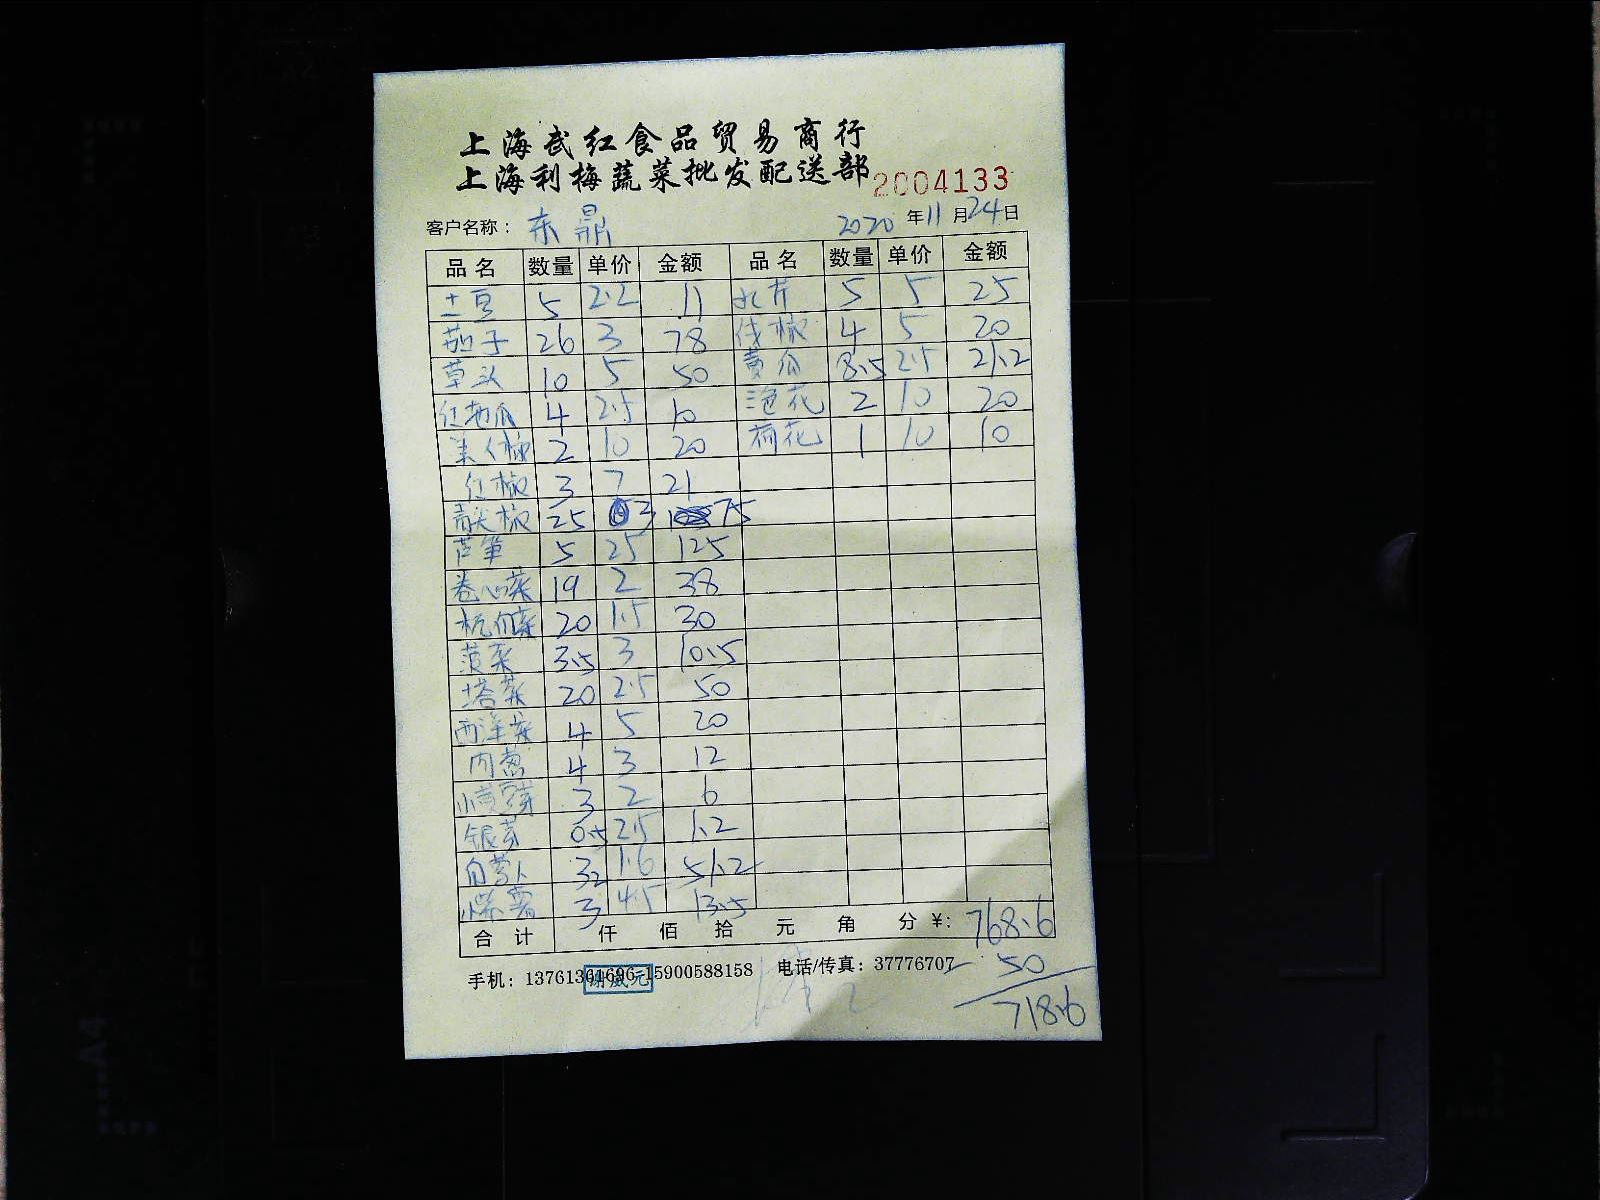 上海武红食品贸易商行
上海利梅蔬菜批发配送部 2004133
客户名称： 东鼎 2020年11月24日
品名 数量 单价 金额 品名 数量 单价 金额
土豆 5 2.2 11 水芹 5 5 25
茄子 26 3 78 线椒 4 5 20
草头 10 5 50 黄瓜 8.5 2.5 21.2
红地瓜 4 2.5 10 泡花 2 10 20
美人椒 2 10 20 荷花 1 10 10
红椒 3 7 21
青尖椒 25 3 75
芦笋 5 25 125
卷心菜 19 2 38
杭白菜 20 1.5 30
菠菜 3.5 3 10.5
塔菜 20 2.5 50
西洋菜 4 5 20
肉葱 4 3 12
小黄豆芽 3 2 6
银芽 0.5 2.5 1.2
白萝卜 32 1.6 51.2
小紫薯 3 4.5 13.5
合计 仟 佰 拾 元 角 分 ¥: 768.6
手机：13761301696 15900588158 电话/传真：37776707 50
718.6